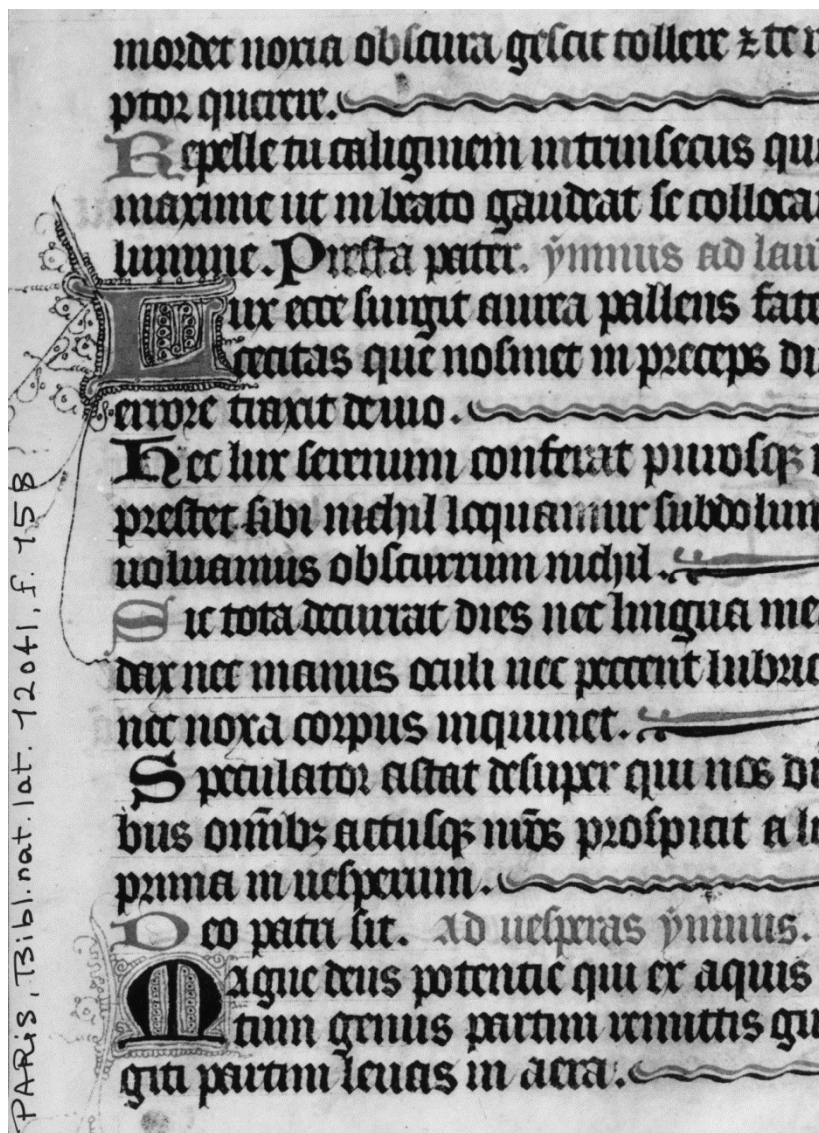 mordet noxia obscura gescit tollere ⁊ te r
ptor querere.
Repelle tu caliginem intrinsecus qu
maxime ut in beato gaudeat se colloca
lumine. Presta pater. ymnus ad lau
Lux ecce surgit aurea pallens fate
cecitas que nosmet in preceps di
errore traxit deuio.
Hec lux serenum conferat purosqꝫ
prestet sibi nichil loquamur subdolum
uoluamus obscurum nichil.
Sic tota decurrat dies nec lingua me
dax nec manus oculi nec peccent lubric
nec noxa corpus inquinet.
Speculator astat desuper qui nos di
bus omībꝫ actusqꝫ nr̄os prospicit a lu
prima in uesperum.
Deo patri sit. Ad uesperas ymnus.
Magne deus potentie qui ex aquis
tum genus partim remittis gu
giti partim leuas in aera.
PARIS, Bibl. nat. lat. 12041, f. 158